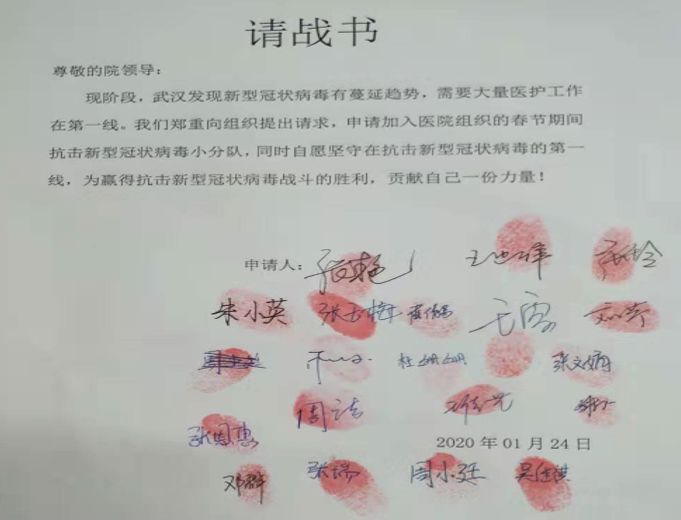 请战书
尊敬的院领导：
现阶段，武汉发现新型冠状病毒有蔓延趋势，需要大量医护工作
在第一线。我们郑重向组织提出请求，申请加入医院组织的春节期间
抗击新型冠状病毒小分队，同时自愿坚守在抗击新型冠状病毒的第一
线，为赢得抗击新型冠状病毒战斗的胜利，贡献自己一份力量！
申请人：张艳
朱小英 张玉梅
杜姗姗 张文娟
周洁
张恩惠
2020 年 01 月 24 日
邓群 张瑞 周小廷